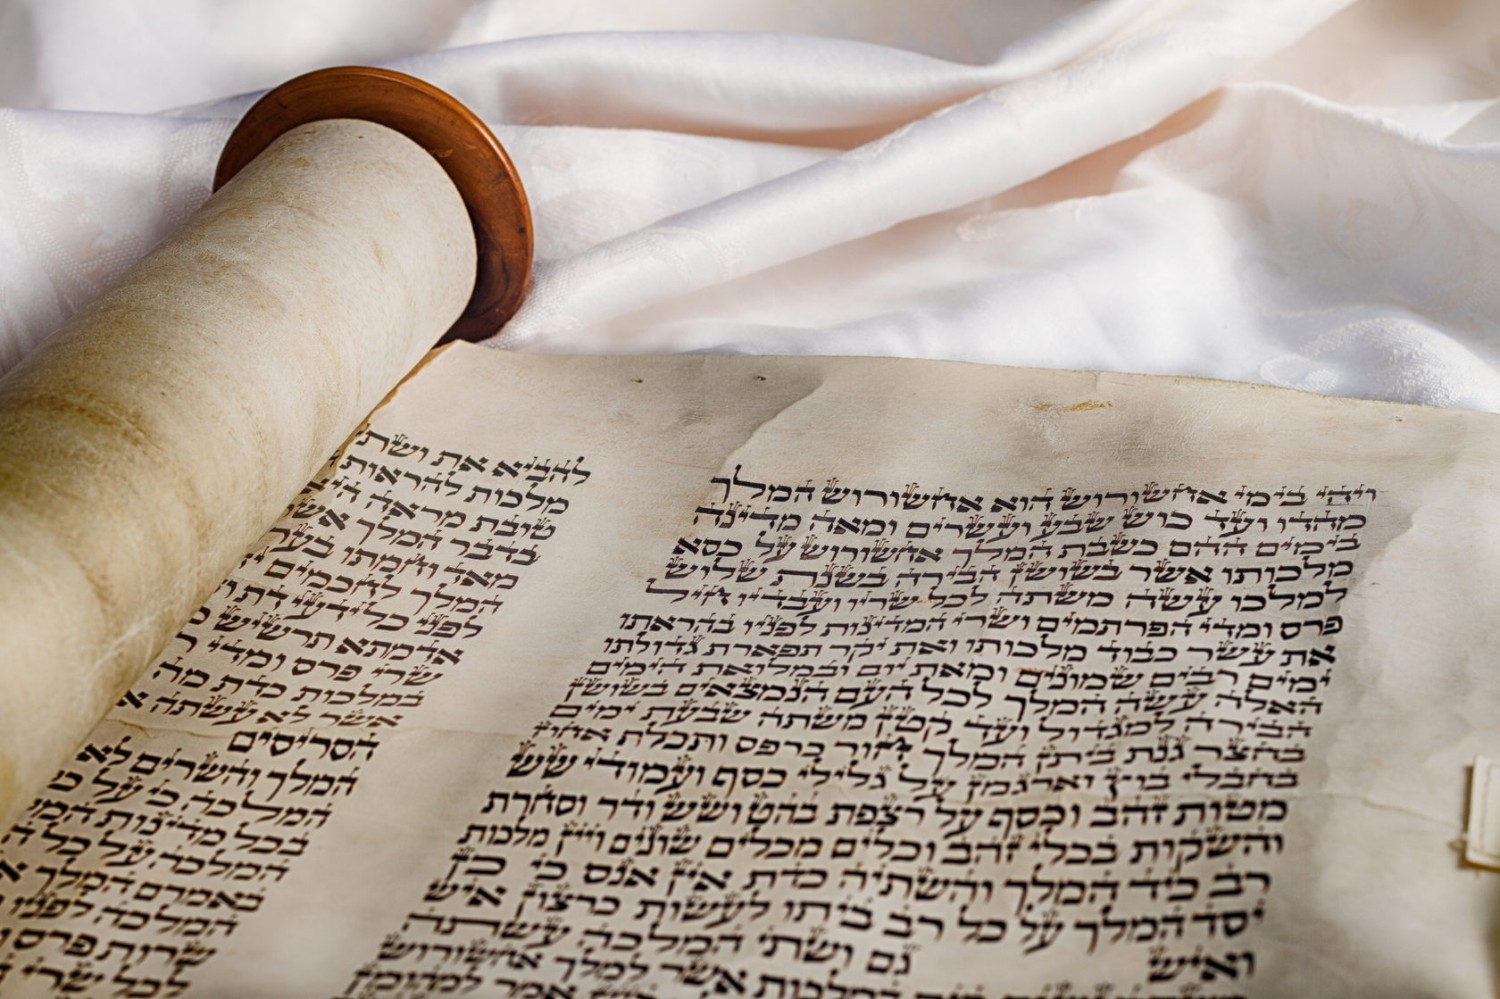 ויהי בימי אחשורוש הוא אחשורוש המלך
מהדו ועד כוש שבע ועשרים ומאה מדינה
בימים ההם כשבת המלך אחשורוש על כסא
מלכותו אשר בשושן הבירה בשנת שלוש
למלכו עשה משתה לכל שריו ועבדיו חיל
פרס ומדי הפרתמים ושרי המדינות לפניו בהראתו
את עשר כבוד מלכותו ואת יקר תפארת גדולתו
ימים רבים שמונים ומאת יום ובמלואת הימים
האלה עשה המלך לכל העם הנמצאים בשושן
הבירה למגדול ועד קטן משתה שבעת ימים
בחצר גנת ביתן המלך חור כרפס ותכלת אחוז
בחבלי בוץ וארגמן על גלילי כסף ועמודי שש
מטות זהב וכסף על רצפת בהט ושש ודר וסחרת
והשקות בכלי זהב וכלים מכלים שונים ויין מלכות
רב כיד המלך והשתיה כדת אין אנס כי כן
יסד המלך על כל רב ביתו לעשות כרצון איש
ואיש גם ושתי המלכה עשתה
המלכות אשר למלך אחשורוש
אמר למהומן
להביא את ושתי
מלכות להראות
טובת מראה היא
בדבר המלך אשר
מאד וחמתו בערה
המלך לחכמים
לפני כל ידעי דת ודין
אדמתא תרשיש
שרי פרס ומדי
במלכות כדת מה
אשר לא עשתה
הסריסים
המלך והשרים לא
המלכה כי על
בכל מדינות המלך
המלכה על כל
באמרם המלך
המלכה לפניו
שרות פרס
לכל שרי